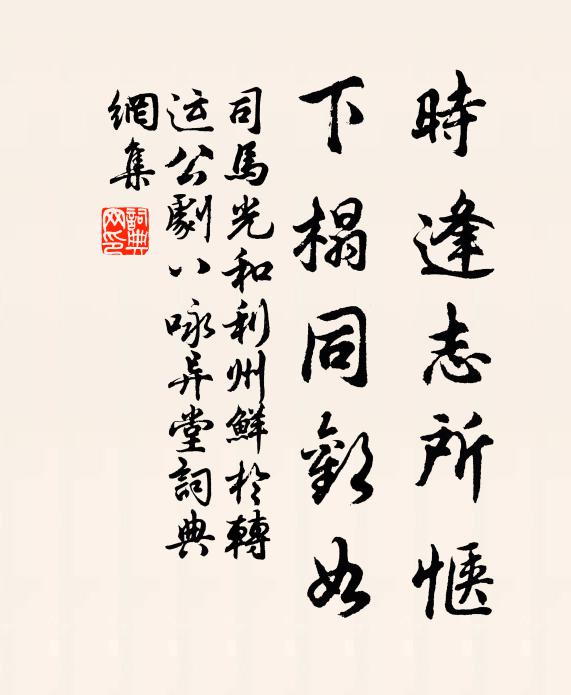 時逢志所愜
下榻同歡如
司馬光和利州鮮於轉
运公劇八咏异堂詞典
網集
詞典网印